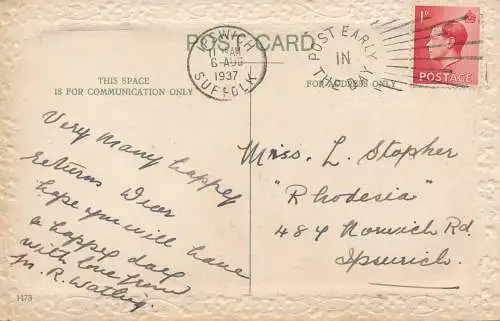 POST CARD
IPSWICH
11 AM
6 AUG
1937
SUFFOLK
POST EARLY
IN
THE DAY
1D
POSTAGE
THIS SPACE
IS FOR COMMUNICATION ONLY
FOR ADDRESS ONLY
Very Many happy
returns Dear
hope you will have
a happy day
with love from
R. Watling
Miss. L. Stopher
"Rhodesia"
484 Norwich Rd.
Ipswich.
1173